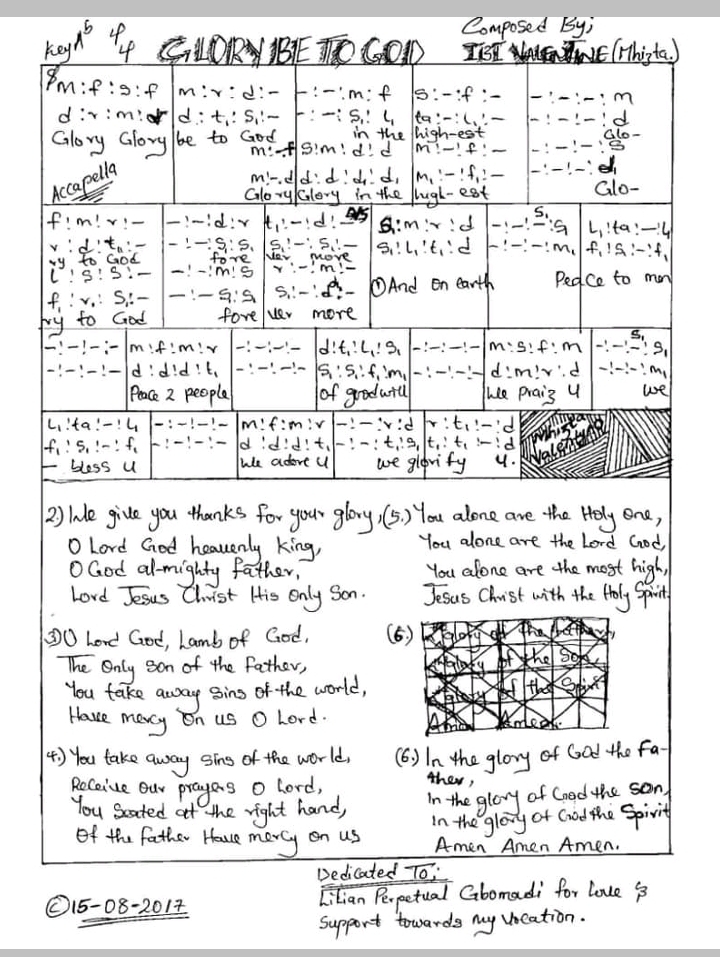 Key Ab 4/4 GLORY BE TO GOD
Composed By;
IBI VALENTINE (Mhizta.)
m:f:s:f | m:r:d:- | -:-:m:f | s:-:f:- | -:-:-:m
d:r:m:d | d:t,:s,:- | -:-:s,:l, | ta:-:l,:- | -:-:-:d
Glory Glory be to God in the high-est Glo-
m:-f | s:m:d:d | m:-:f:- | -:-:-:s
m:-.d | d:d:d,:d, | m,:-:f,:- | -:-:-:d,
Accapella
Glory Glory in the high-est Glo-
f:m:r:- | -:-:d:r | t,:-:d:- D/S | s,:m:r:d | -:-:-:s, | l,:ta:-:l,
r:d:t,:- | -:-:s,:s, | s,:-:s,:- | s,:l,:t,:d | -:-:-:m, | f,:s,:-:f,
ry to God fore ver more
l:s:s:- | -:-:m:s | r:-:m:-
① And on earth Peace to men
f,:r,:s,:- | -:-:s,:s, | s,:-:d:-
ry to God fore ver more
-:-:-:- | m:f:m:r | -:-:-:- | d:t,:l,:s, | -:-:-:- | m:s:f:m | -:-:-:s,
-:-:-:- | d:d:d:t, | -:-:-:- | s,:s,:f,:m, | -:-:-:- | d:m:r:d | -:-:-:m,
Peace 2 people of goodwill We praiz U we
l,:ta:-:l, | -:-:-:- | m:f:m:r | -:-:r:d | r:t,:-:d
f,:s,:-:f, | -:-:-:- | d:d:d:t, | -:-:t,:s, | t,:t,:-:d
- bless U We adore U we glorify U.
Mhizta Valentino
2) We give you thanks for your glory,
O Lord God heavenly King,
O God al-mighty father,
Lord Jesus Christ His only Son.
(5.) You alone are the Holy One,
You alone are the Lord God,
You alone are the most high,
Jesus Christ with the Holy Spirit.
3) O Lord God, Lamb of God,
The Only Son of the Father,
You take away Sins of the world,
Have mercy On us O Lord.
(6.) glory of the Father,
glory of the Son,
glory of the Spirit
Amen Amen.
4.) You take away Sins of the world,
Receive Our prayers O Lord,
You Seated at the right hand,
Of the father Have mercy on us
(6.) In the glory of God the Fa-
ther,
In the glory of God the Son,
In the glory of God the Spirit
Amen Amen Amen.
©15-08-2017
Dedicated To;
Lilian Perpetual Gbomadi for Love &
Support towards my Vocation.